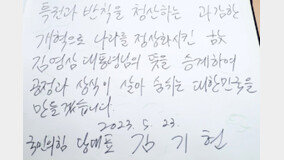 특권과 반칙을 청산하는 과감한
개혁으로 나라를 정상화시킨 故
김영삼 대통령님의 뜻을 승계하여
공정과 상식이 살아 숨쉬는 대한민국을
만들겠습니다.
2023. 5. 23.
국민의힘 당대표 김기현